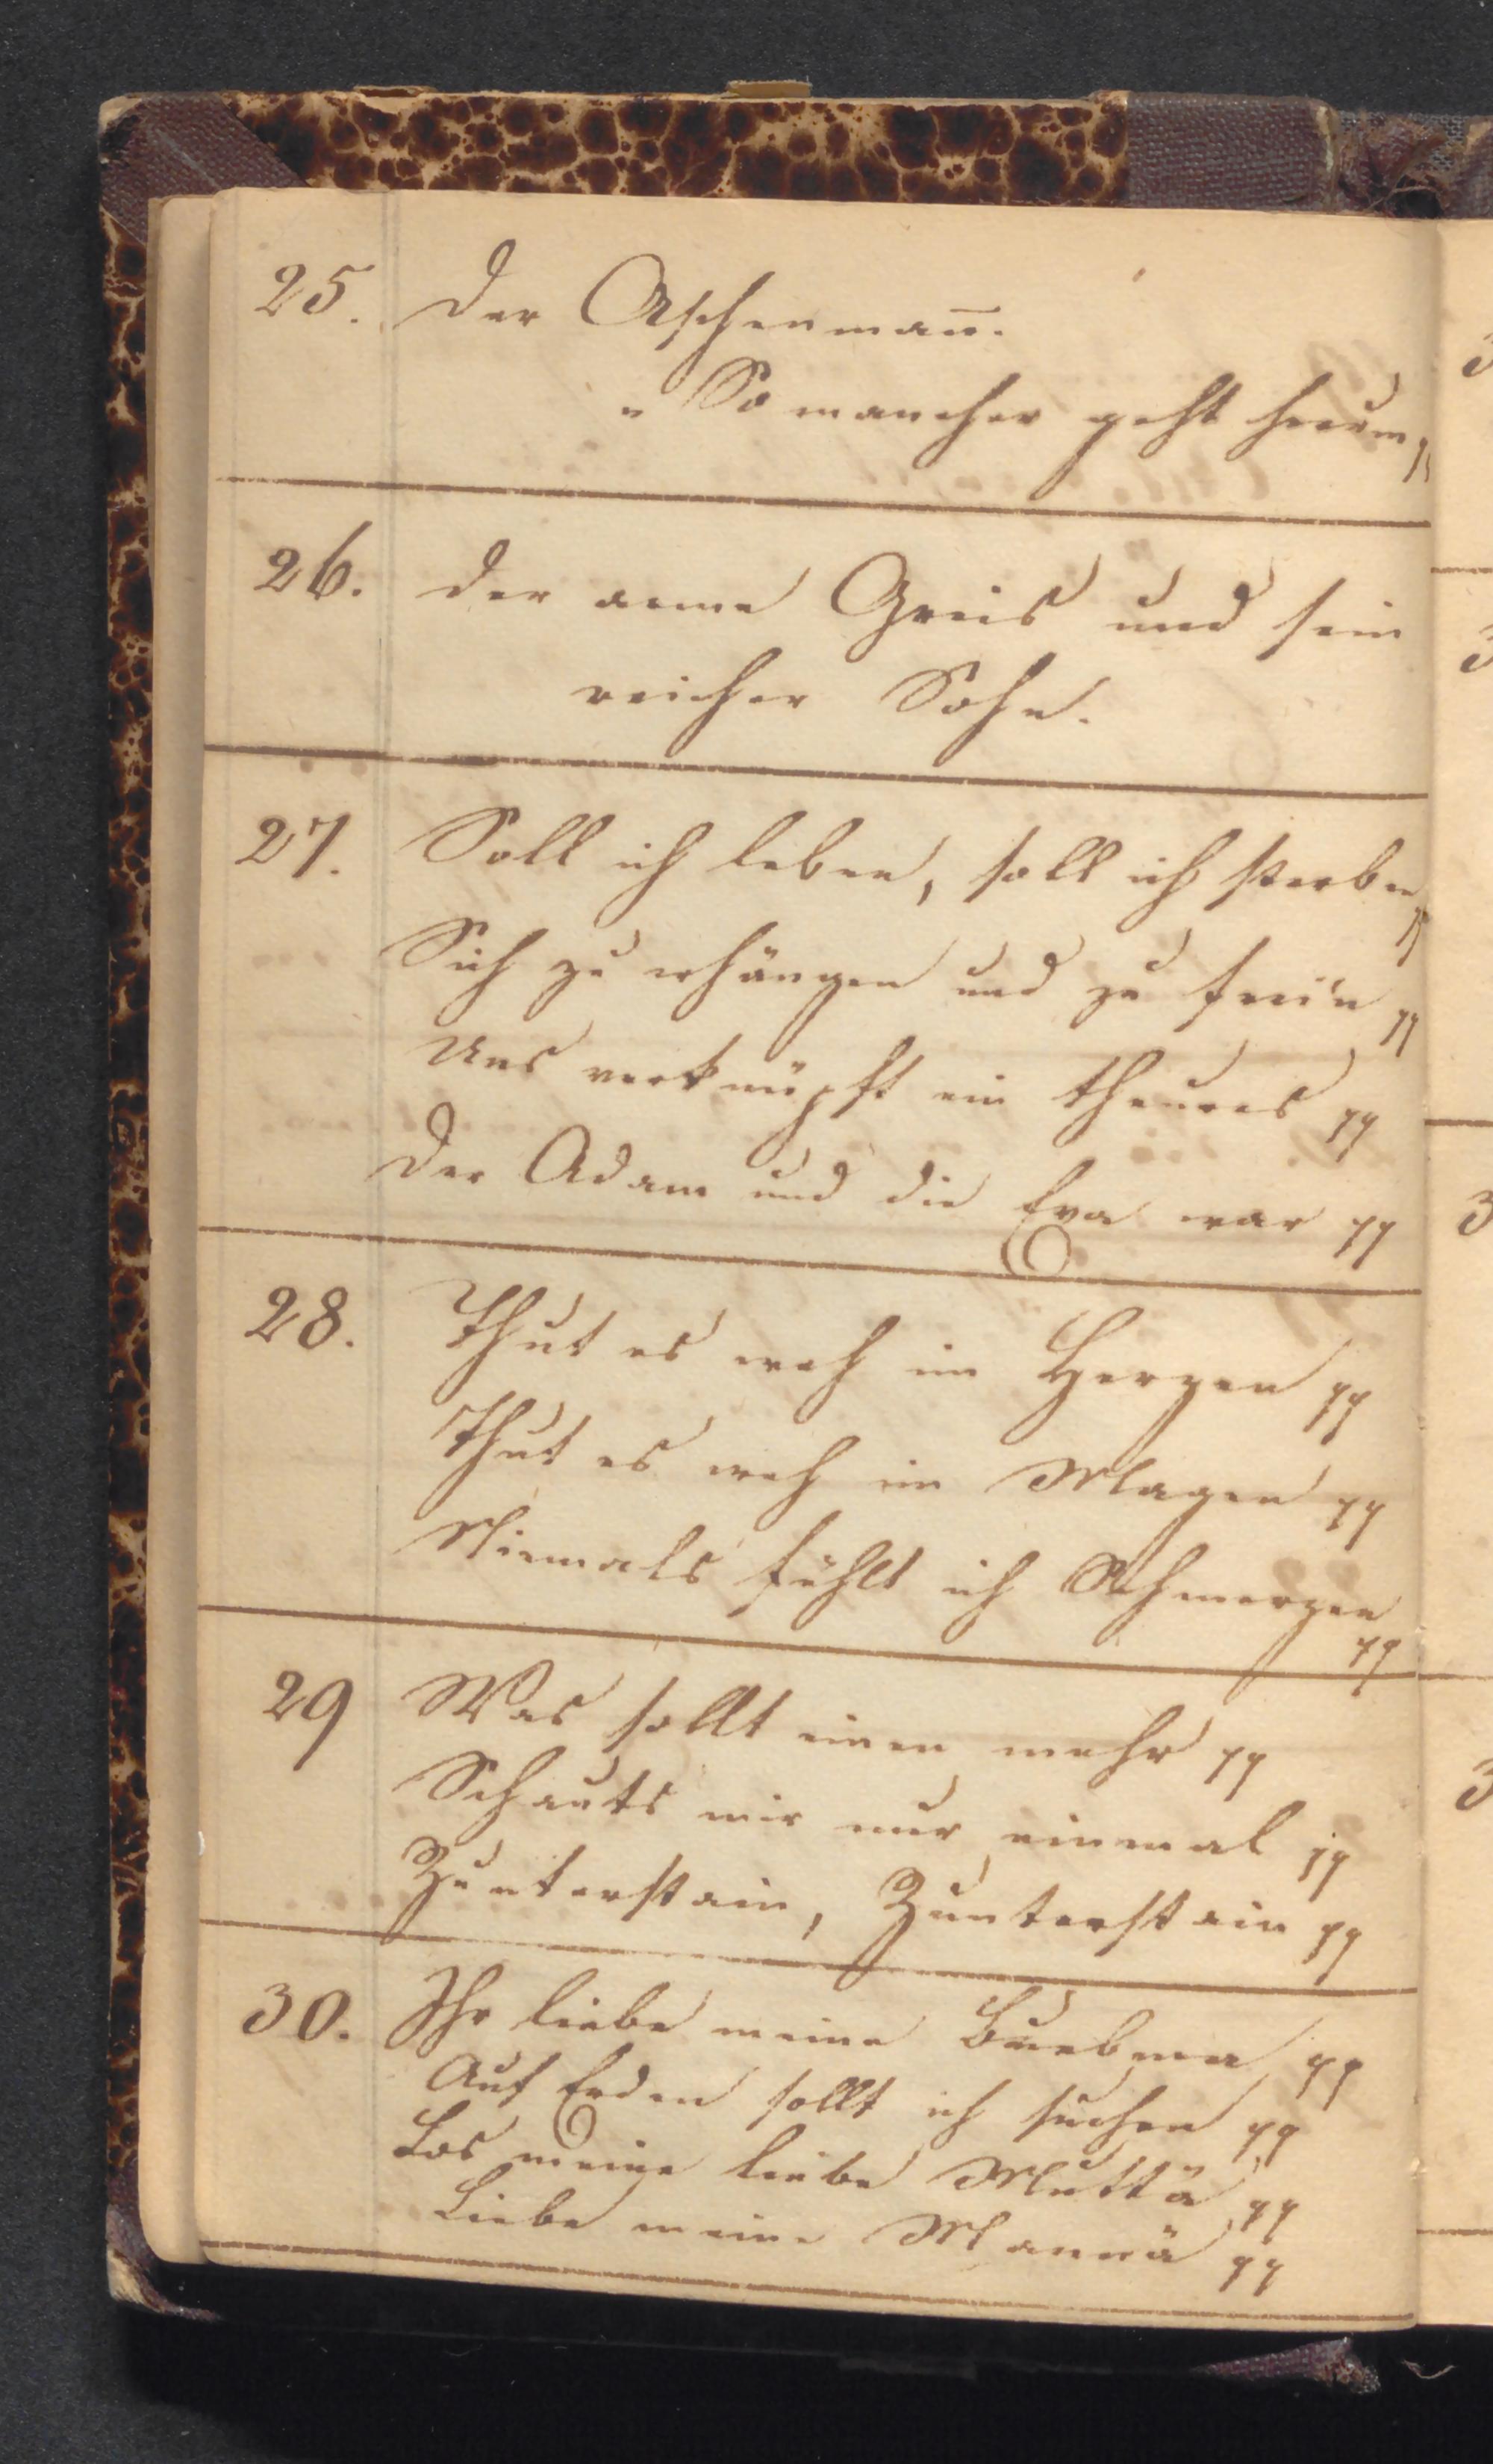 25. Der Aschenman̄.
" So mancher geht herum pp
26. Der arme Greis und sein
reicher Sohn.
27. Soll ich leben, soll ich sterben pp
Sich zu erhängen und zu frei'n pp
Uns verknüpft ein theures pp
Der Adam und die Eva war pp
28. Thut es weh im Herzen pp
Thut es weh im Magen pp
Niemals fühlt ich Schmerzen
pp
29 Was sollt einen mehr pp
Schauts mir nur einmal pp
Zunterstein, Zunterstein pp
30. Ihr liebe meine pp
Auf Erden sollt ich suchen pp
Los meine liebe Muttä pp
Liebe meine Mannä pp